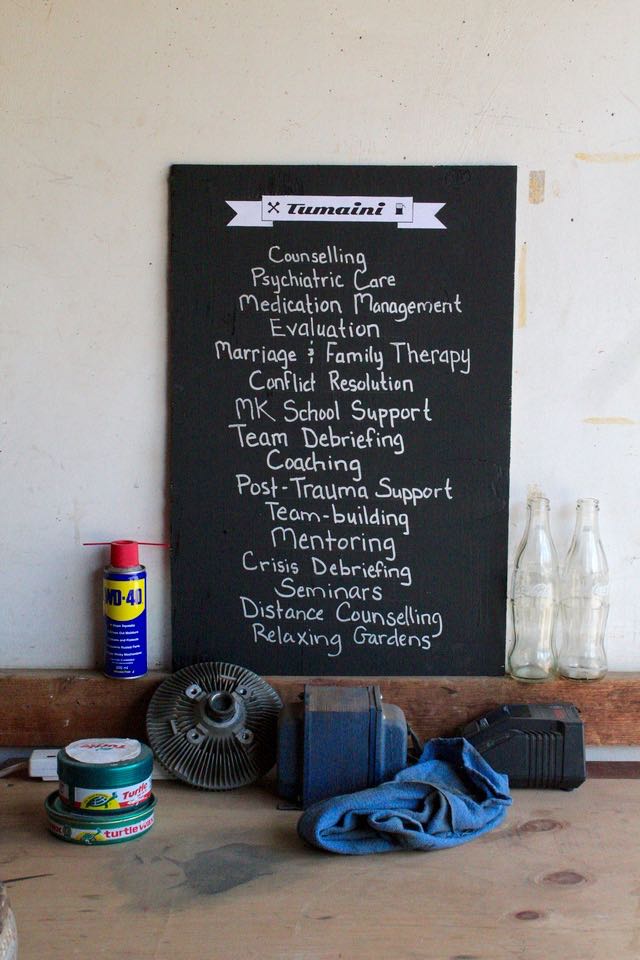 Tumaini
Counselling
Psychiatric Care
Medication Management
Evaluation
Marriage & Family Therapy
Conflict Resolution
MK School Support
Team Debriefing
Coaching
Post-Trauma Support
Team-building
Mentoring
Crisis Debriefing
Seminars
Distance Counselling
Relaxing Gardens
WD-40
Turtle
turtle wax